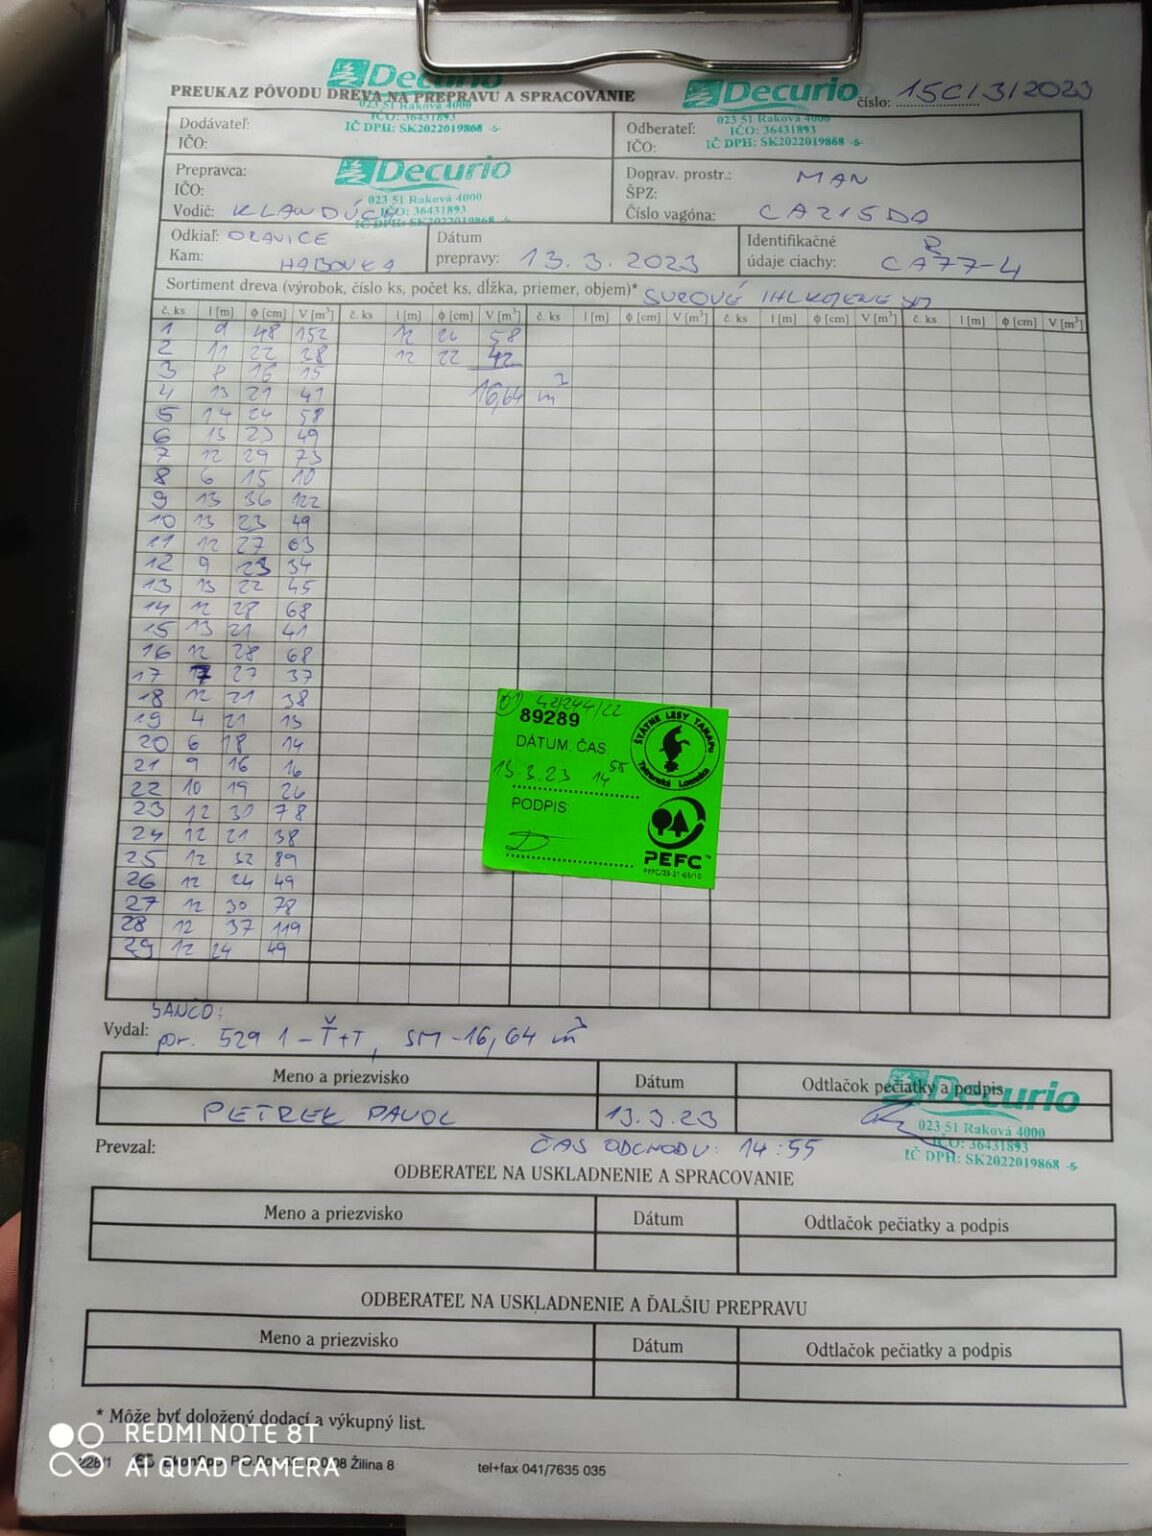 Decurio
PREUKAZ PÔVODU DREVA NA PREPRAVU A SPRACOVANIE
023 51 Raková 4000
IČO: 36431893
IČ DPH: SK2022019868 -5-
Decurio
číslo: 15C/3/2023
023 51 Raková 4000
IČO: 36431893
IČ DPH: SK2022019868 -5-
Dodávateľ:
IČO:
Odberateľ:
IČO:
Prepravca:
IČO:
Vodič:
Decurio
023 51 Raková 4000
IČO: 36431893
IČ DPH: SK2022019868 -5-
Doprav. prostr.: MAN
ŠPZ:
Číslo vagóna: CA215DD
Odkiaľ: ORAVICE
Kam: HABOVKA
Dátum
prepravy: 13.3.2023
Identifikačné
údaje ciachy: CA77-4
Sortiment dreva (výrobok, číslo ks, počet ks, dĺžka, priemer, objem)* SUROVÉ
č. ks l [m] ϕ [cm] V [m³] č. ks l [m] ϕ [cm] V [m³] č. ks l [m] ϕ [cm] V [m³] č. ks l [m] ϕ [cm] V [m³] č. ks l [m] ϕ [cm] V [m³]
1 9 48 152 12 24 58
2 11 22 28 12 22 42
3 8 16 15
4 13 21 41 16,64 m³
5 14 24 58
6 13 23 49
7 12 29 73
8 6 15 10
9 13 36 122
10 13 23 49
11 12 27 63
12 9 23 34
13 13 22 45
14 12 28 68
15 13 21 41
16 12 28 68
17 7 27 37
18 12 21 38
19 4 21 13
20 6 18 14
21 9 16 16
22 10 19 26
23 12 30 78
24 12 21 38
25 12 32 89
26 12 24 49
27 12 30 78
28 12 37 119
29 12 24 49
42/244/22
89289
DÁTUM, ČAS
13.3.23 14 55
PODPIS:
ŠTÁTNE LESY TANAPu
Tatranská Lomnica
PEFC™
PEFC/23-21-03/10
SANČO:
Vydal: por. 529 1-Ť+T, SM -16,64 m³
Meno a priezvisko Dátum Odtlačok pečiatky a podpis
PETREK PAVOL 13.3.23
Decurio
023 51 Raková 4000
IČO: 36431893
IČ DPH: SK2022019868 -5-
Prevzal: ČAS ODCHODU: 14:55
ODBERATEĽ NA USKLADNENIE A SPRACOVANIE
Meno a priezvisko Dátum Odtlačok pečiatky a podpis
ODBERATEĽ NA USKLADNENIE A ĎALŠIU PREPRAVU
Meno a priezvisko Dátum Odtlačok pečiatky a podpis
* Môže byť doložený dodací a výkupný list.
REDMI NOTE 8T
AI QUAD CAMERA
Žilina 8
tel+fax 041/7635 035